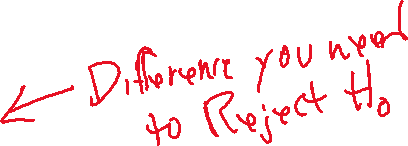 Difference you need
to Reject Ho